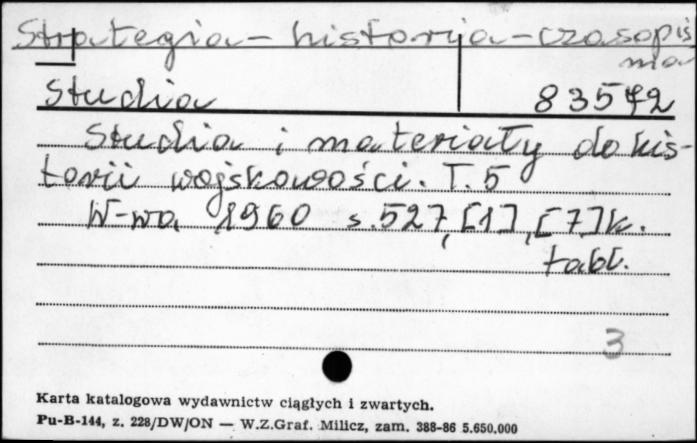 Strategia - historia - czasopis
ma
Studia 83572
Studia i materiały do his-
torii wojskowości. T. 5
W-wa 1960 s. 527, [1], [7] k.
tabl.
3
Karta katalogowa wydawnictw ciągłych i zwartych.
Pu-B-144, z. 228/DW/ON — W.Z.Graf. Milicz, zam. 388-86 5.650.000